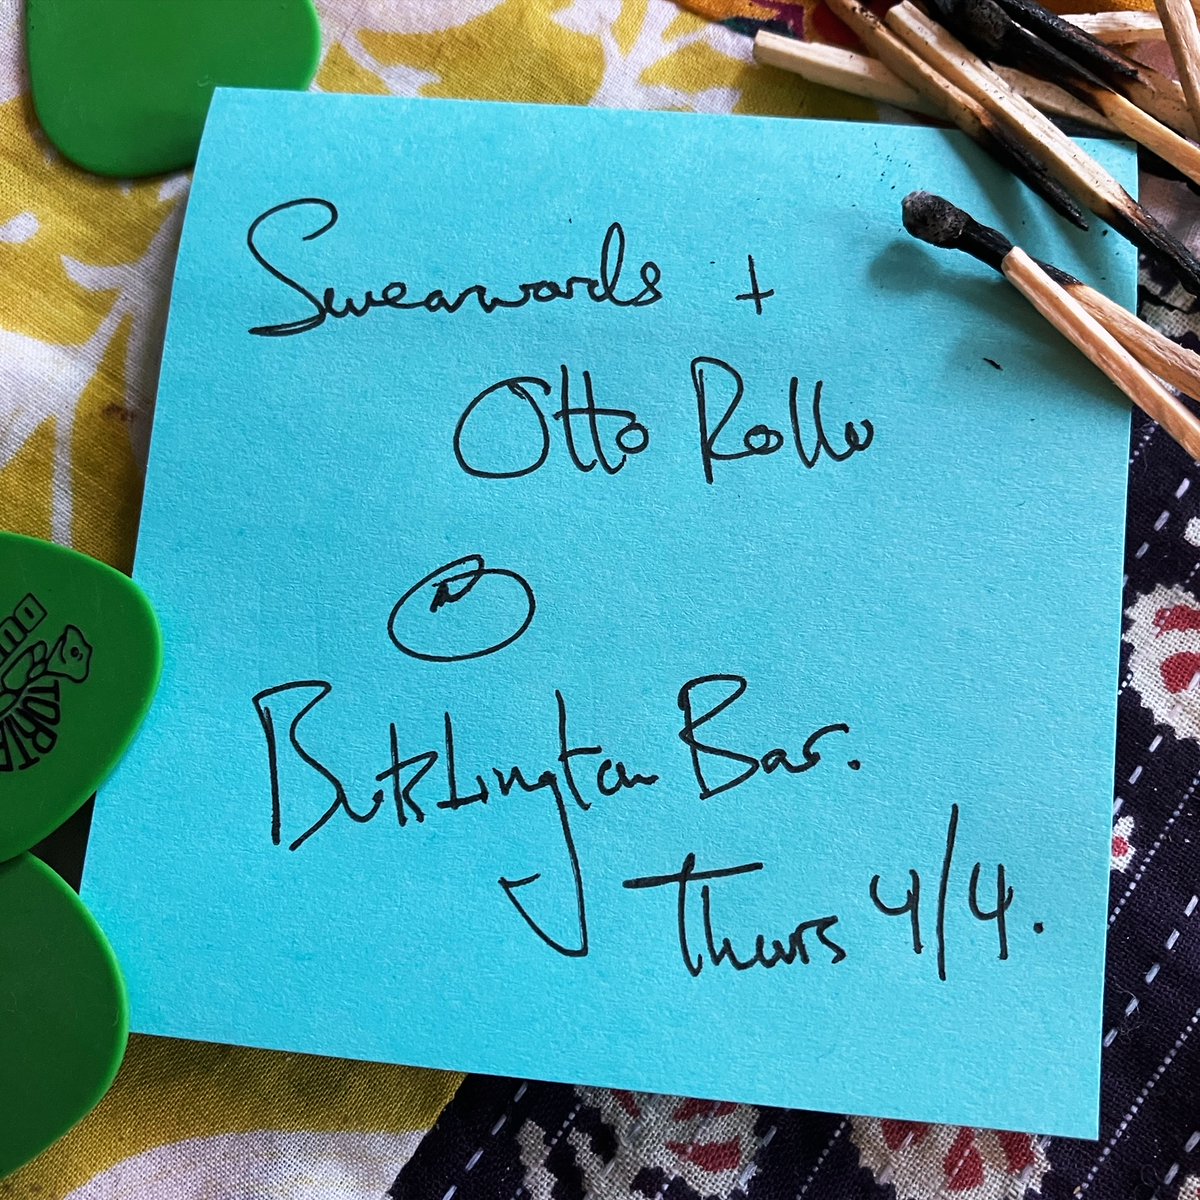 Swearwords +
Otto Rollo
@
Bar.
Thurs 4/4.